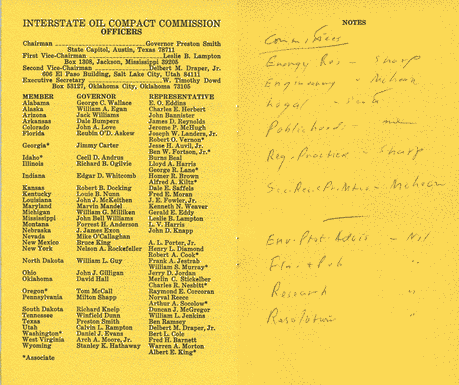 INTERSTATE OIL COMPACT COMMISSION
OFFICERS
Chairman Governor Preston Smith
State Capitol, Austin, Texas 78711
First Vice-Chairman Leslie B. Lampton
Box 1308, Jackson, Mississippi 39205
Second Vice-Chairman Delbert M. Draper, Jr.
606 El Paso Building, Salt Lake City, Utah 84111
Executive Secretary W. Timothy Dowd
Box 53127, Oklahoma City, Oklahoma 73105
MEMBER GOVERNOR REPRESENTATIVE
Alabama George C. Wallace E. O. Eddins
Alaska William A. Egan Charles E. Herbert
Arizona Jack Williams John Bannister
Arkansas Dale Bumpers James D. Reynolds
Colorado John A. Love Jerome P. McHugh
Florida Reubin O'D. Askew Joseph W. Landers, Jr.
Robert O. Vernon*
Georgia* Jimmy Carter Jesse H. Auvil, Jr.
Ben W. Fortson, Jr.*
Idaho* Cecil D. Andrus Burns Beal
Illinois Richard B. Ogilvie Lloyd A. Harris
George R. Lane*
Indiana Edgar D. Whitcomb Homer R. Brown
Alfred A. Kiltz*
Kansas Robert B. Docking Dale E. Saffels
Kentucky Louie B. Nunn Fred E. Moran
Louisiana John J. McKeithen J. E. Fowler, Jr.
Maryland Marvin Mandel Kenneth N. Weaver
Michigan William G. Milliken Gerald E. Eddy
Mississippi John Bell Williams Leslie B. Lampton
Montana Forrest H. Anderson L. V. Harris
Nebraska J. James Exon John D. Knapp
Nevada Mike O'Callaghan
New Mexico Bruce King A. L. Porter, Jr.
New York Nelson A. Rockefeller Henry L. Diamond
Robert A. Cook*
North Dakota William L. Guy Frank A. Jestrab
William S. Murray*
Ohio John J. Gilligan Jerry D. Jordan
Oklahoma David Hall Merlin C. Stickelber
Charles R. Nesbitt*
Oregon* Tom McCall Raymond E. Corcoran
Pennsylvania Milton Shapp Norval Reece
Arthur A. Socolow*
South Dakota Richard Kneip Duncan J. McGregor
Tennessee Winfield Dunn William L. Jenkins
Texas Preston Smith Ben Ramsey
Utah Calvin L. Rampton Delbert M. Draper, Jr.
Washington* Daniel J. Evans Bert L. Cole
West Virginia Arch A. Moore, Jr. Fred H. Barnett
Wyoming Stanley K. Hathaway Warren A. Morton
Albert E. King*
*Associate
NOTES
Committees
Energy Res - Sharp
Engineering -
Legal -
Reg. Practice Sharp
Env. Prot.
Research "
Resolutions "